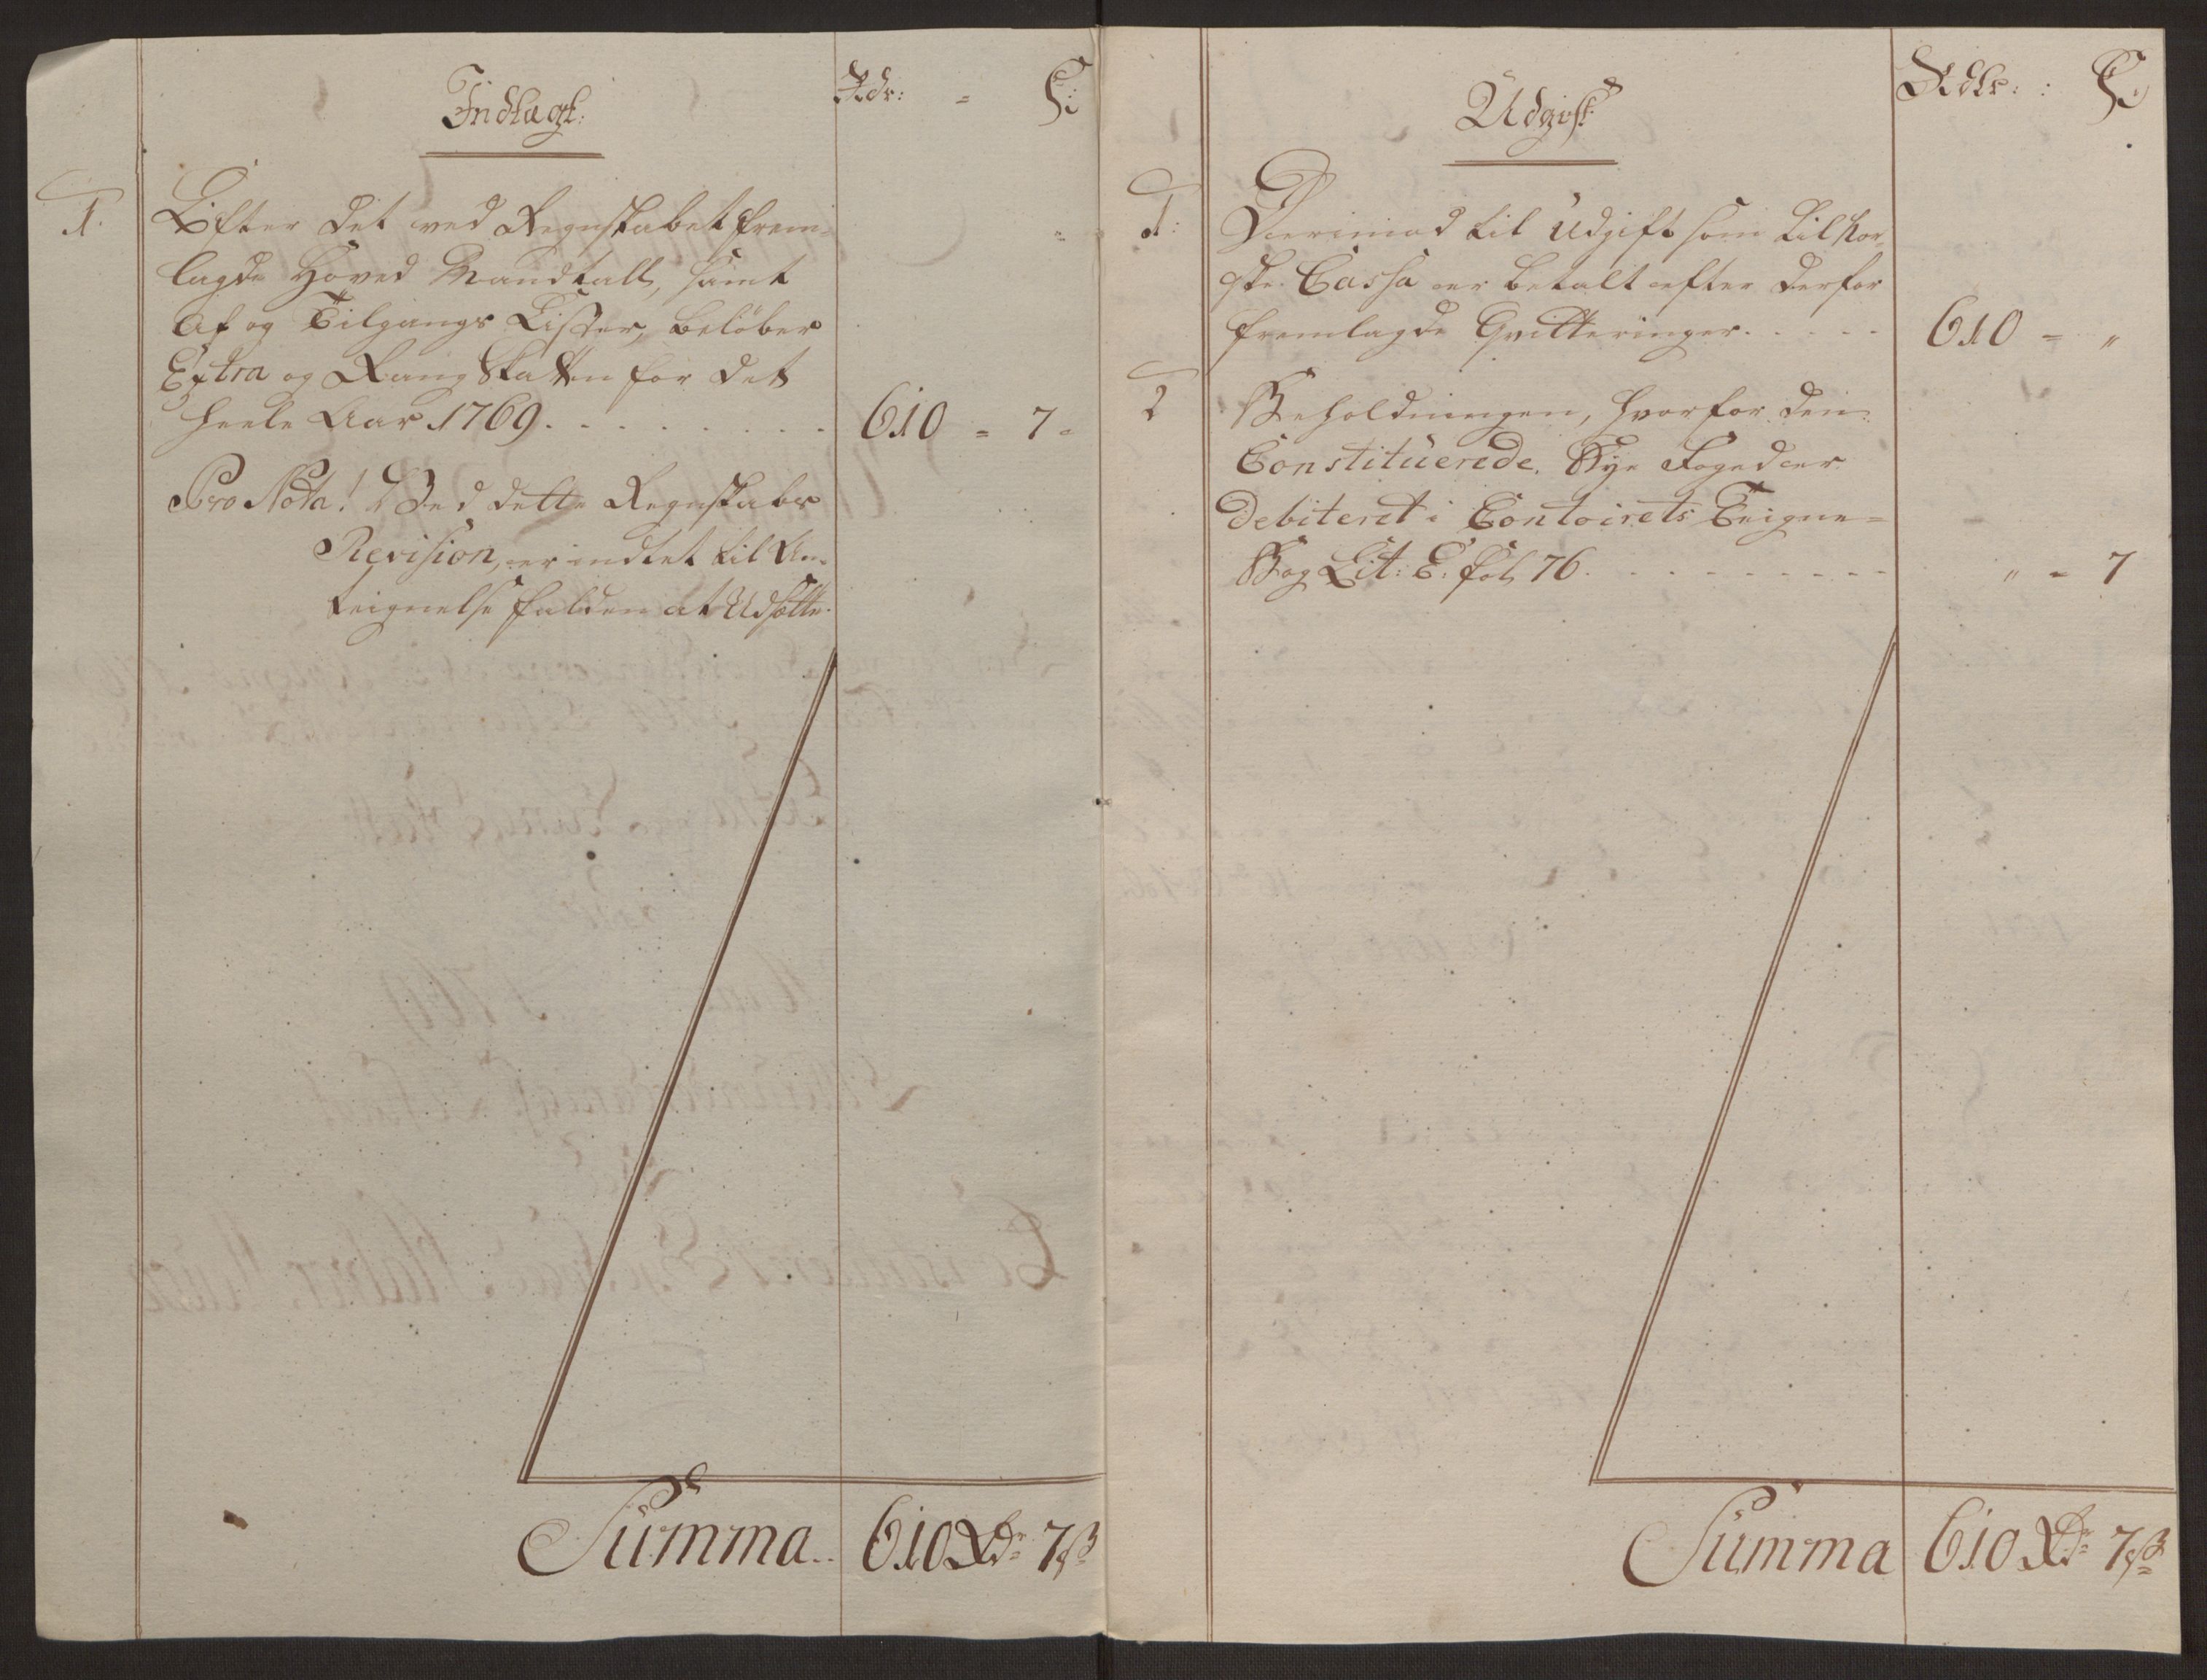 Indtægt: Rdr: = ß:
1. Efter det ved Regnskabet frem-
lagde Hoved Mandtall, samt
Af og Tilgangs Lister, beløber
Extra og Rang Skatten for det
heele Aar 1769. 610 = 7 =
Pro Nota! Ved dette Regnskabs
Revision, er indtet til An-
teignelse falden at Udsætte.
Summa.. 610 Rdr 7 ß
Udgift Rdlr: : ß:
1: Derimod til Udgift som til
Cassa er betalt efter derfor
fremlagde Qvitteringer. 610 = "
2 Beholdningen, hvorfor den
Constituerede. Bye Foged er
Debiteret i Contoirets Teigne=
Bog Lit: E. fol 76. " = 7
Summa 610 Rdr 7 ß